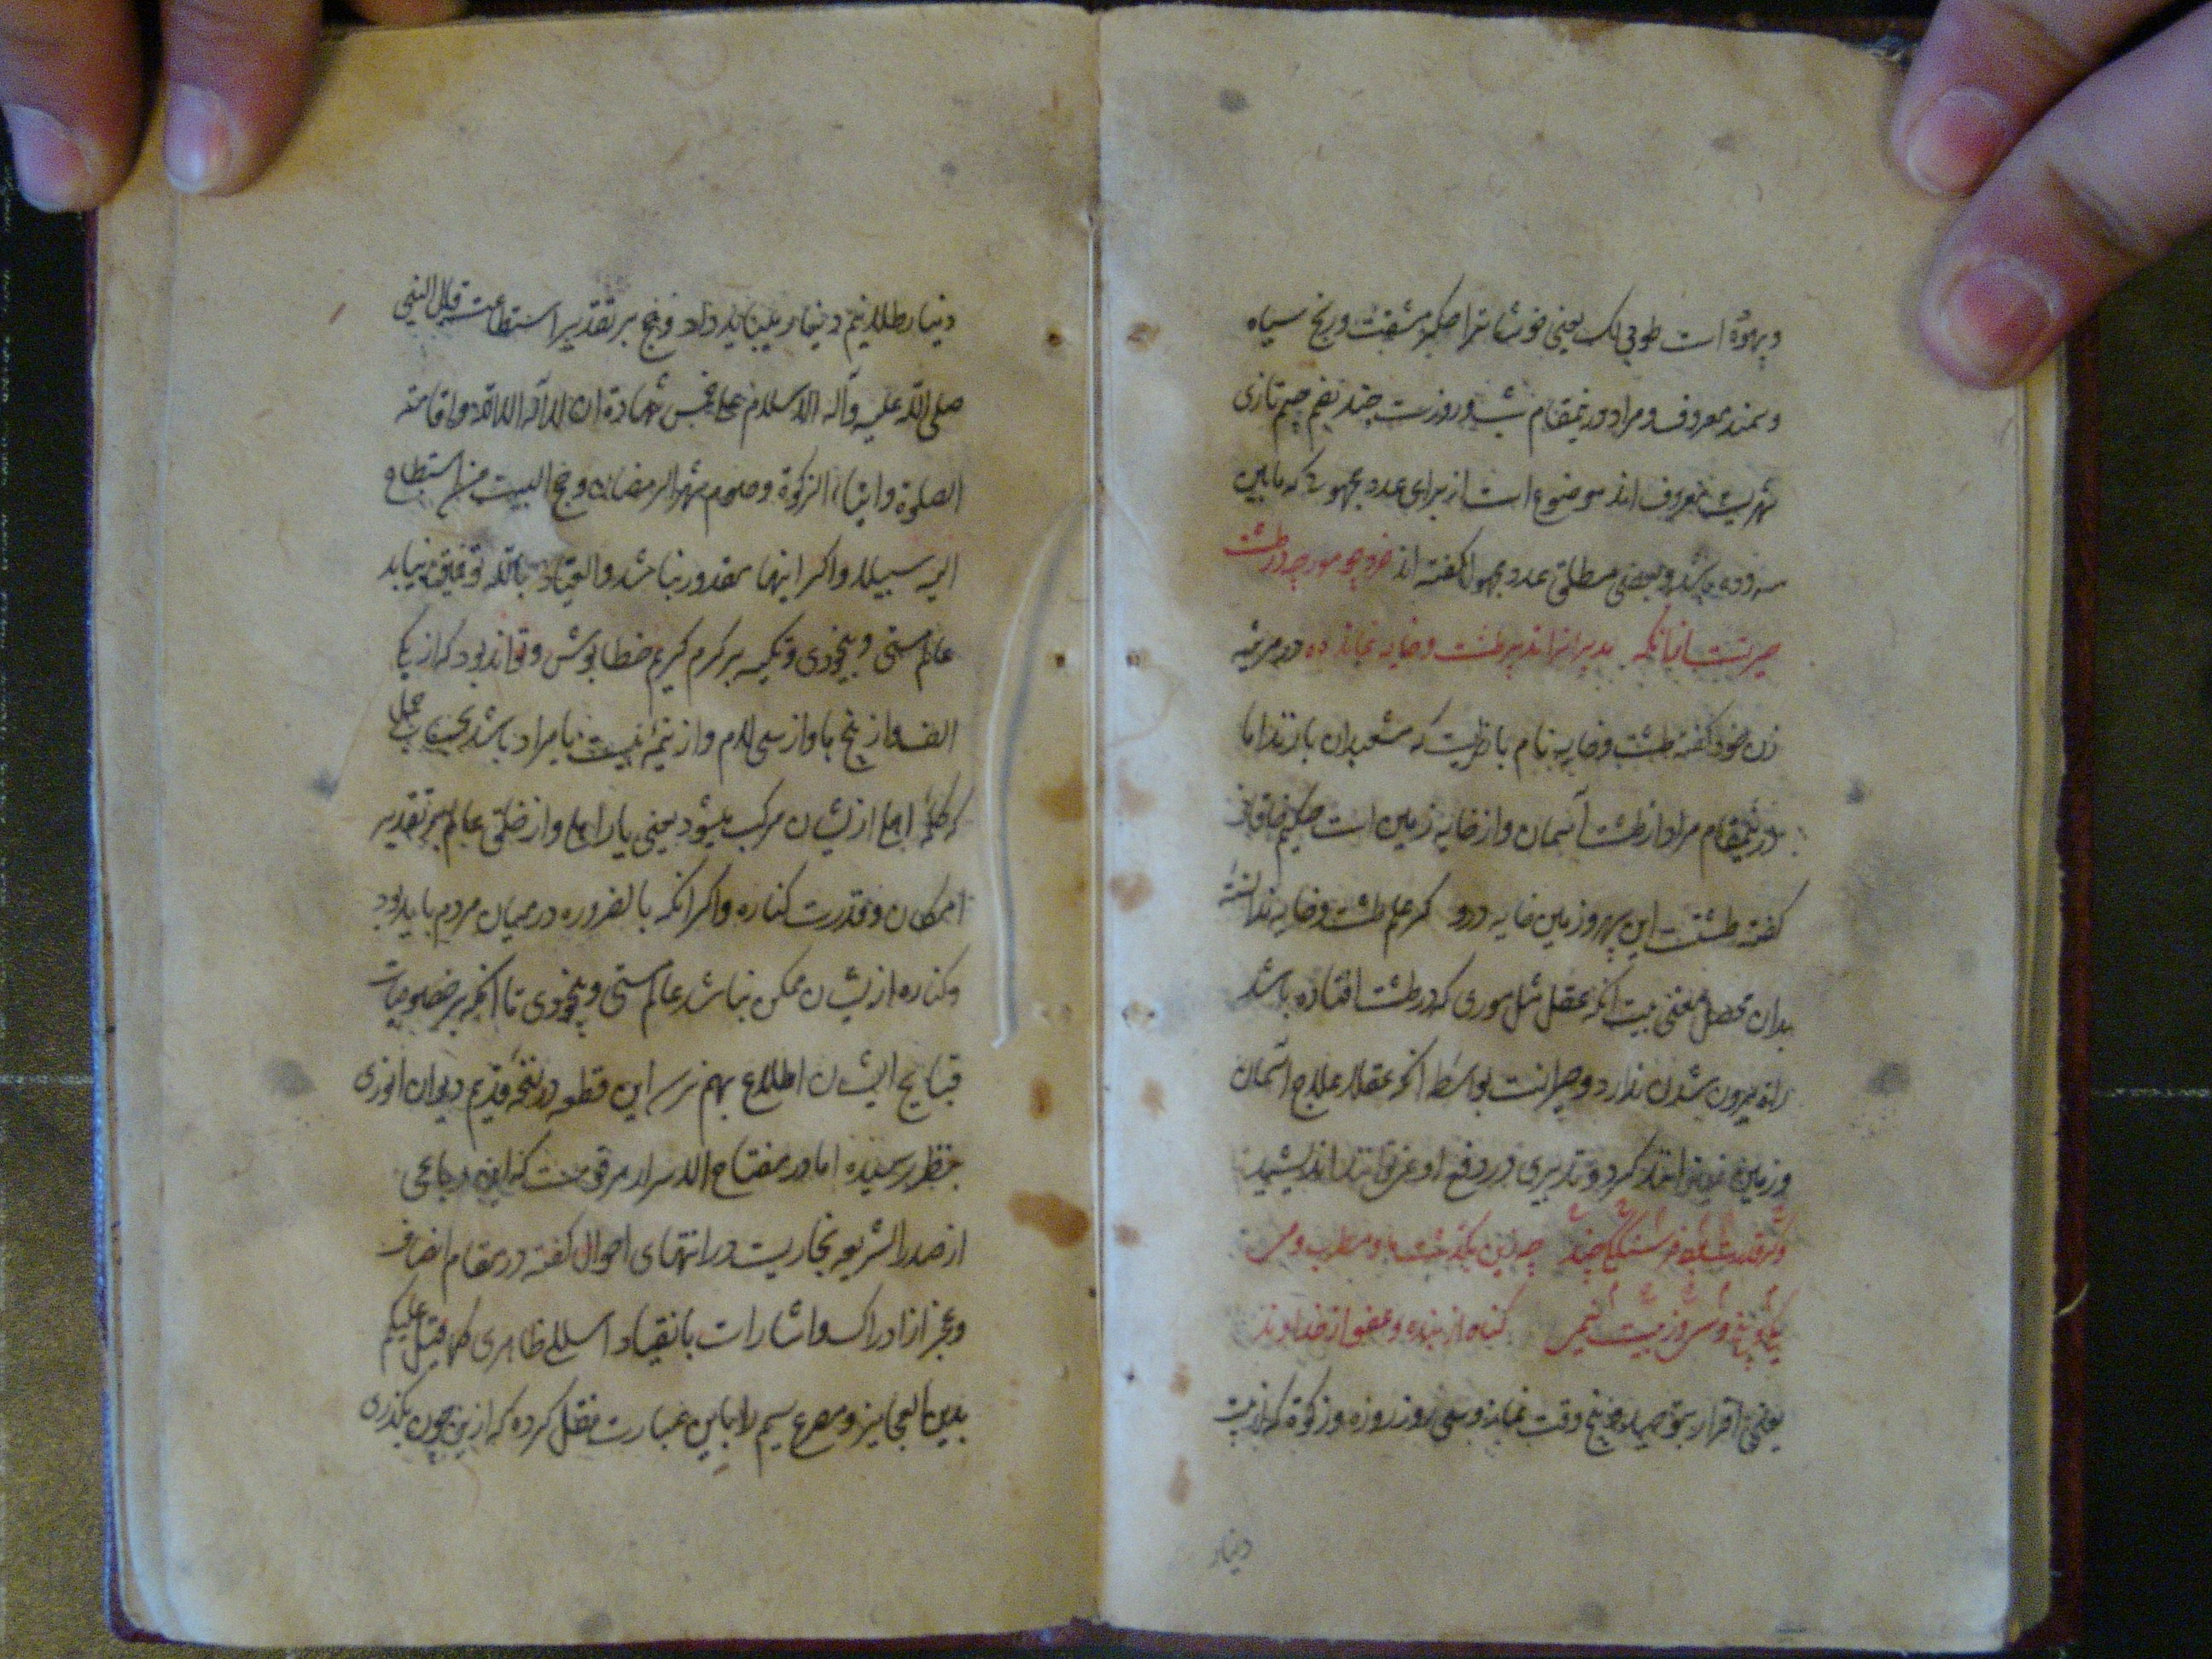 و بهره است طوبی لک یعنی خوشا ترا حکیم مشقت و رنج سیاه
و سمند معروف و مراد درینمقام شب و روزست چند بفتح جیم تازی
شهریست معروف اند موضوع است از برای عدد مجهول که مابین
سه و ده باشد و بعضی مطلق عدد مجهول گفته اند خرد چو مور چه در طشت
حیرتست ازانکه بدیر انرا تدبیر طشت و خایه نماند ه در مرثیه
زن خود گفته طشت و خایه نام بازیست که مشعبدان بازند اما
درینمقام مراد از طشت آسمان و از خایه زمین است حکیم خاقانی
گفته طشتست این سپهر و زمین خایه درو گر علم طشت و خایه ندانسته
بدان محصل معنی بیت آنکه عقل مثل موری که در طشت افتاده باشد
راه بیرون شدن ندارد و حیرانست بواسطه آنکه عقلا علاج آسمان
و زمین نمیتوانند کرد و تدبیری در دفع او نمی توانند اندیشید
چند چو زین بگذشت با و مطرب و می
گناه از بنده و عفو از خداوند
یعنی اقرار بتوحید و پنج وقت نماز و سی روز روزه و زکوة که از بیست
دینار
دینار طلا نیم دینار میباید داد و حج بر تقدیر استطاعت قال النبی
صلی الله علیه و آله الاسلام علی خمس شهادة ان لا اله الا الله و اقامة
الصلوة و ایتاء الزکوة و صوم شهر رمضان و حج البیت من استطاع
الیه سبیلا و اگر اینها مقدور نباشد و العیاذ بالله توفیق نیابد
عالم مستی و بیخودی و تکیه بر کرم کریم خطاپوش و تواند بود که از یکی
الف و از پنج ها و از سی لام و از نیمه بیست یا مراد باشد
که کلمه اهل ازیشان مرکب میشود یعنی یا را اهل و از خلق عالم بر تقدیر
امکان و قدرت کناره و اگر آنکه بالضروره در میان مردم باید بود
و کناره ازیشان ممکن نباشد عالم مستی و بیخودی تا آنکه بر خصوصیات
قبایح ایشان اطلاع بهم نرسد این قطعه در نسخه قدیم دیوان انوری
بنظر رسیده اما در مفتاح الاسرار مرقومست که این رباعی
از صدر الشریعه بخاریست در انتهای احوال گفته در مقام انصاف
و عجز از ادراک و اشارات بانقیاد اسلام ظاهری کما قیل علیکم
بدین العجایز و مصرع سیم را باین عبارت نقل کرده که ازین چون بگذری